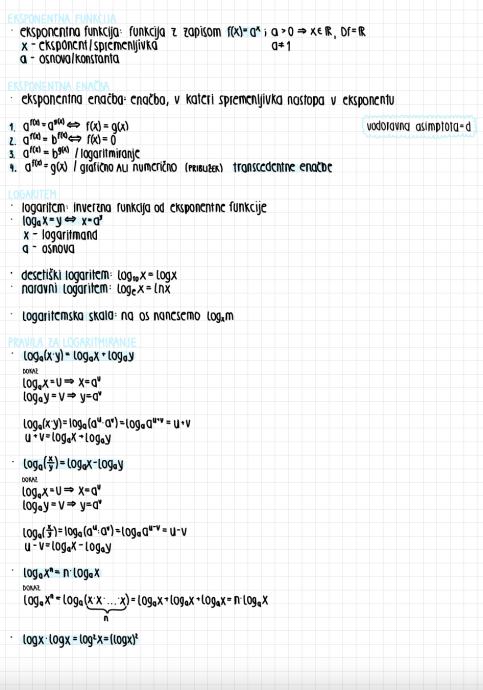 EKSPONENTNA FUNKCIJA
· eksponentna funkcija: funkcija z zapisom f(x)=aˣ ; a>0 ⇒ x∈ℝ, Df=ℝ
x - eksponent/spremenljivka a≠1
a - osnova/konstanta
EKSPONENTNA ENAČBA
· eksponentna enačba: enačba, v kateri spremenljivka nastopa v eksponentu
1. a^f(x)=a^g(x) ⇔ f(x)=g(x)
vodoravna asimptota=d
2. a^f(x)=b^f(x) ⇔ f(x)=0
3. a^f(x)=b^g(x) /logaritmiranje
4. a^f(x)=g(x) /grafično ALI numerično (PRIBLIŽEK) transcedentne enačbe
LOGARITEM
· logaritem: inverzna funkcija od eksponentne funkcije
· logₐx=y ⇔ x=aʸ
x - logaritmand
a - osnova
· desetiški logaritem: log₁₀x=logx
· naravni logaritem: logₑx=lnx
· logaritemska skala: na os nanesemo logₐm
PRAVILA ZA LOGARITMIRANJE
· logₐ(x·y)=logₐx+logₐy
DOKAZ
logₐx=u ⇒ x=aᵘ
logₐy=v ⇒ y=aᵛ
logₐ(x·y)=logₐ(aᵘ·aᵛ)=logₐaᵘ⁺ᵛ=u+v
u+v=logₐx+logₐy
· logₐ(x/y)=logₐx-logₐy
DOKAZ
logₐx=u ⇒ x=aᵘ
logₐy=v ⇒ y=aᵛ
logₐ(x/y)=logₐ(aᵘ:aᵛ)=logₐaᵘ⁻ᵛ=u-v
u-v=logₐx-logₐy
· logₐxⁿ=n·logₐx
DOKAZ
logₐxⁿ=logₐ(x·x·...·x)=logₐx+logₐx+logₐx=n·logₐx
n
· logx·logx=log²x=(logx)²